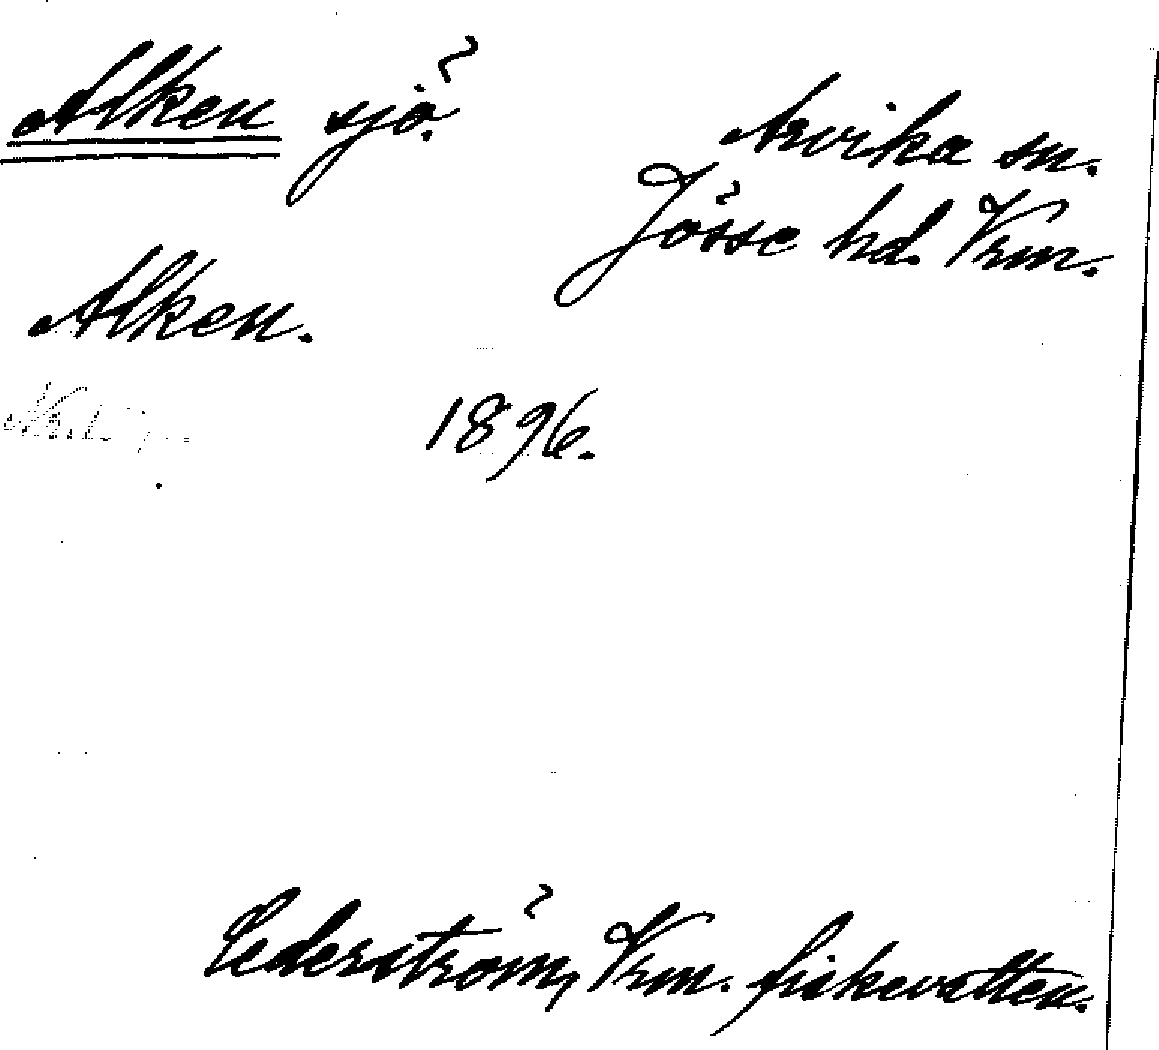 Alken sjö.
Arvika sn.
Jösse hd. Vrm.
Alken.
1896.
Cederström, Vrm. fiskevatten.